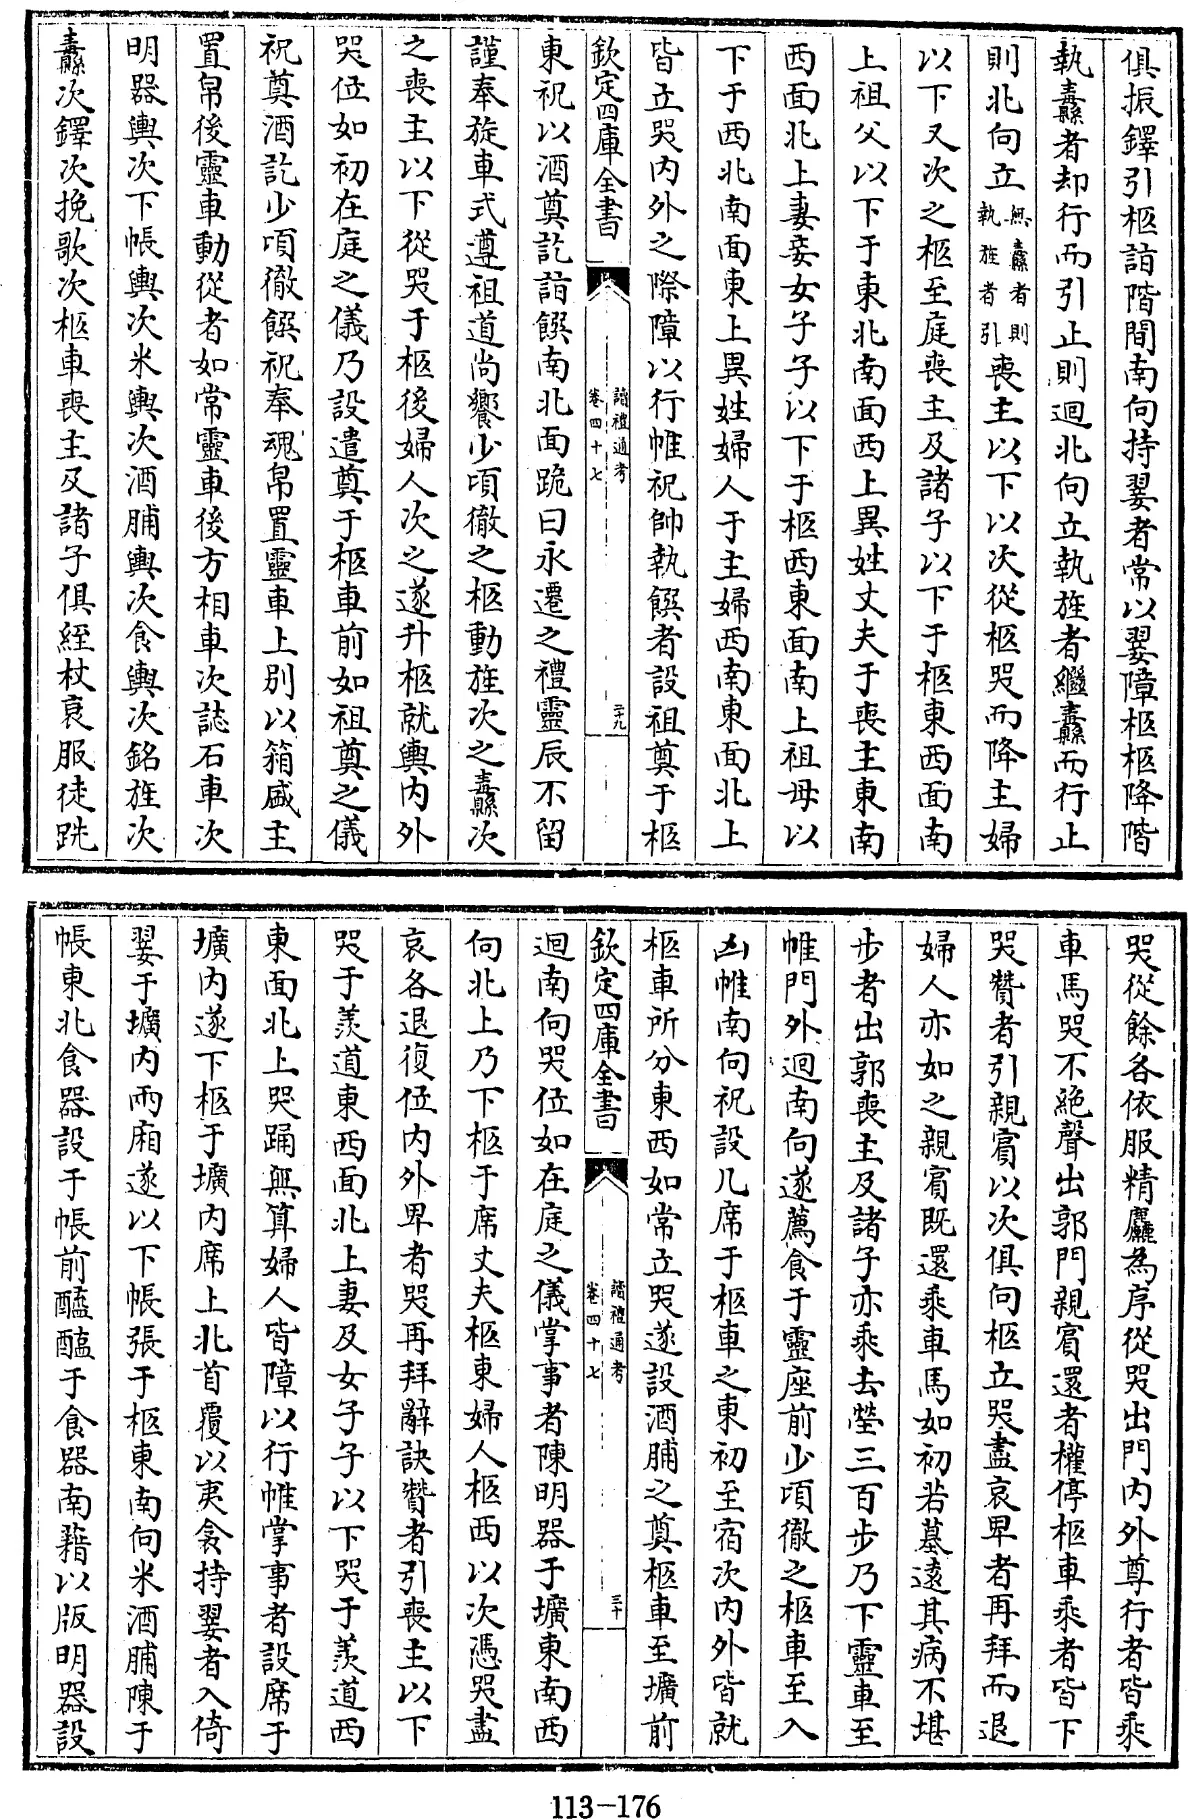 俱振鐸引柩詣階間南向持翣者常以翣障柩柩降階
執纛者却行而引止則迴北向立執旌者繼纛而行止
則北向立無纛者則執旌者引喪主以下以次從柩哭而降主婦
以下又次之柩至庭喪主及諸子以下于柩東西面南
上祖父以下于東北南面西上異姓丈夫于喪主東南
西面北上妻妾女子子以下于柩西東面南上祖母以
下于西北南面東上異姓婦人于主婦西南東面北上
皆立哭內外之際障以行帷祝帥執饌者設祖奠于柩
欽定四庫全書
讀禮通考
卷四十七
二十九
東祝以酒奠訖詣饌南北面跪曰永遷之禮靈辰不留
謹奉旋車式遵祖道尚饗少頃徹之柩動旌次之纛次
之喪主以下從哭于柩後婦人次之遂升柩就輿內外
哭位如初在庭之儀乃設遣奠于柩車前如祖奠之儀
祝奠酒訖少頃徹饌祝奉魂帛置靈車上別以箱盛主
置帛後靈車動從者如常靈車後方相車次誌石車次
明器輿次下帳輿次米輿次酒脯輿次食輿次銘旌次
纛次鐸次挽歌次柩車喪主及諸子俱絰杖衰服徒跣
哭從餘各依服精麤為序從哭出門內外尊行者皆乘
車馬哭不絕聲出郭門親賓還者權停柩車乘者皆下
哭贊者引親賓以次俱向柩立哭盡哀卑者再拜而退
婦人亦如之親賓既還乘車馬如初若墓遠其病不堪
步者出郭喪主及諸子亦乘去塋三百步乃下靈車至
帷門外迴南向遂薦食于靈座前少頃徹之柩車至入
凶帷南向祝設几席于柩車之東初至宿次內外皆就
柩車所分東西如常立哭遂設酒脯之奠柩車至壙前
欽定四庫全書
讀禮通考
卷四十七
三十
迴南向哭位如在庭之儀掌事者陳明器于壙東南西
向北上乃下柩于席丈夫柩東婦人柩西以次憑哭盡
哀各退復位內外卑者哭再拜辭訣贊者引喪主以下
哭于羨道東西面北上妻及女子子以下哭于羨道西
東面北上哭踊無算婦人皆障以行帷掌事者設席于
壙內遂下柩于壙內席上北首覆以夷衾持翣者入倚
翣于壙內兩廂遂以下帳張于柩東南向米酒脯陳于
帳東北食器設于帳前醯醢于食器南藉以版明器設
113-176